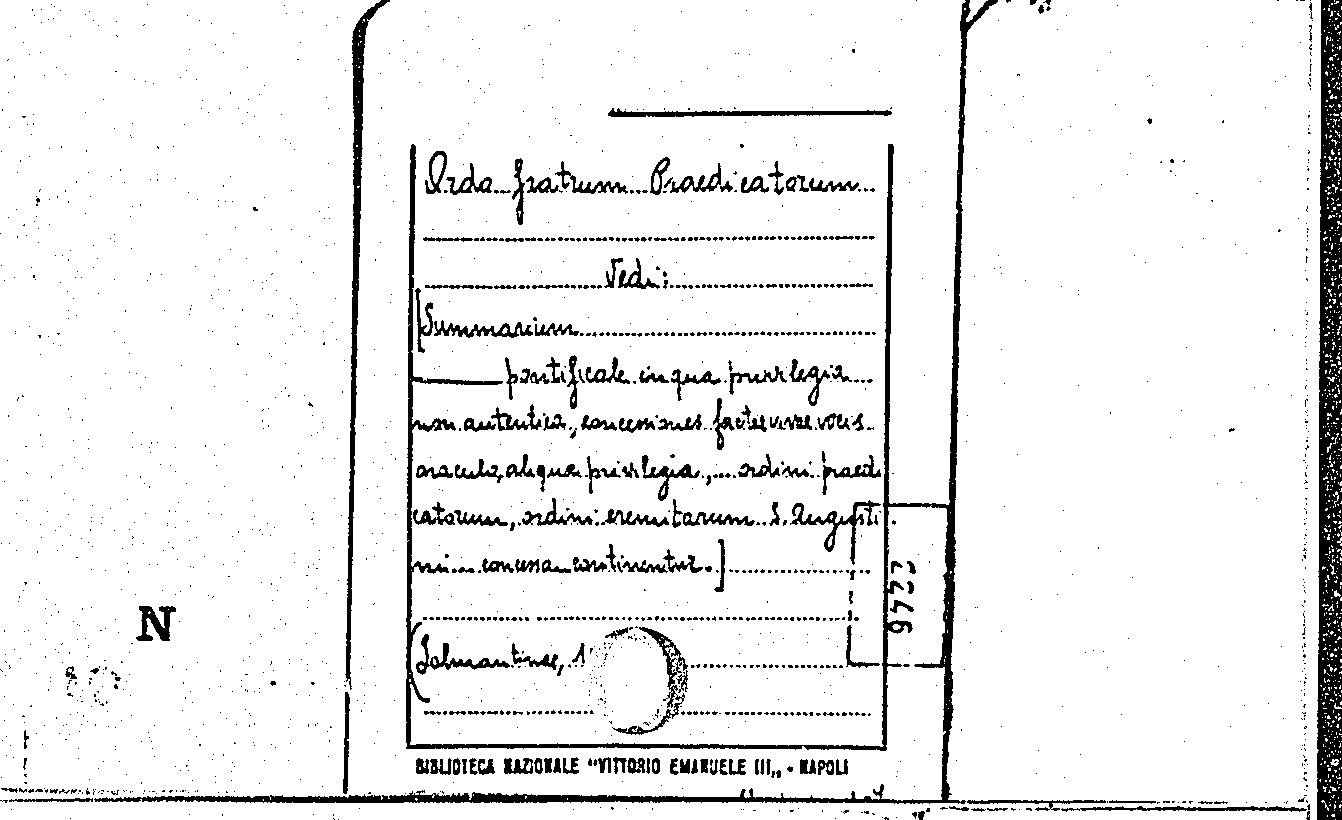 Ordo fratrum Praedicatorum
Vedi:
[Summarium
——— pontificale in qua privilegia
non autentica, concessiones factae vivae vocis
oraculo, aliqua privilegia, ... ordini praedi
catorum, ordini eremitarum S. Augusti
ni ... concessa continentur.]
(Salmantinae, 1
2246
N
BIBLIOTECA NAZIONALE "VITTORIO EMANUELE III„ - NAPOLI